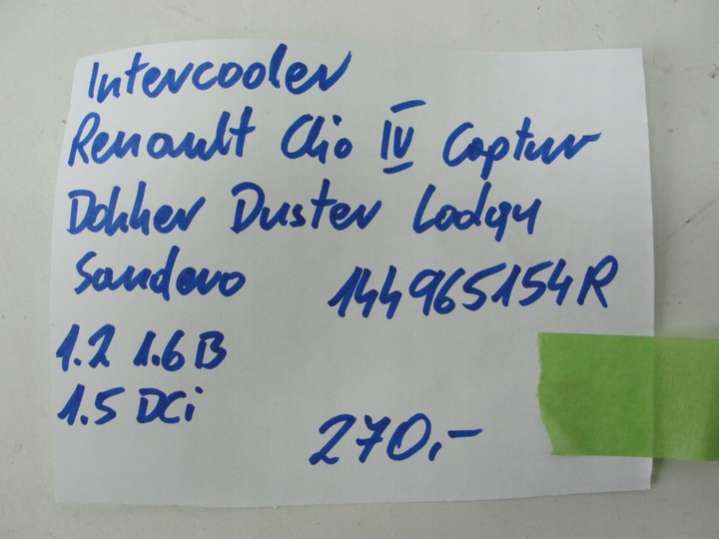 Intercooler
Renault Clio IV Captur
Dokker Duster Lodgy
Sandero 144965154R
1.2 1.6 B
1.5 DCi
270,-